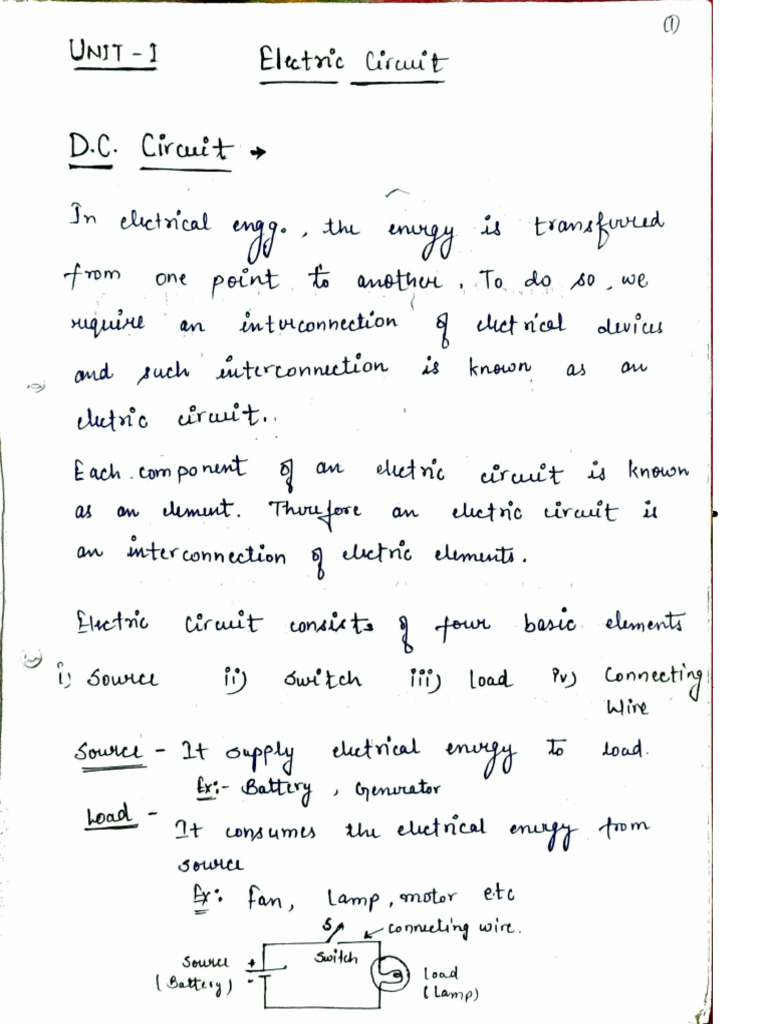 (1)
UNIT - I Electric Circuit
D.C. Circuit →
In electrical engg., the energy is transferred
from one point to another. To do so, we
require an interconnection of electrical devices
and such interconnection is known as an
electric circuit..
Each component of an electric circuit is known
as an element. Therefore an electric circuit is
an interconnection of electric elements.
Electric Circuit consists of four basic elements
i) Source ii) Switch iii) Load iv) Connecting
Wire
Source - It supply electrical energy to load.
Ex:- Battery, Generator
Load -
It consumes the electrical energy from
source
Ex: fan, Lamp, motor etc
S connecting wire.
Switch
Source +
(Battery) -
Load
(Lamp)